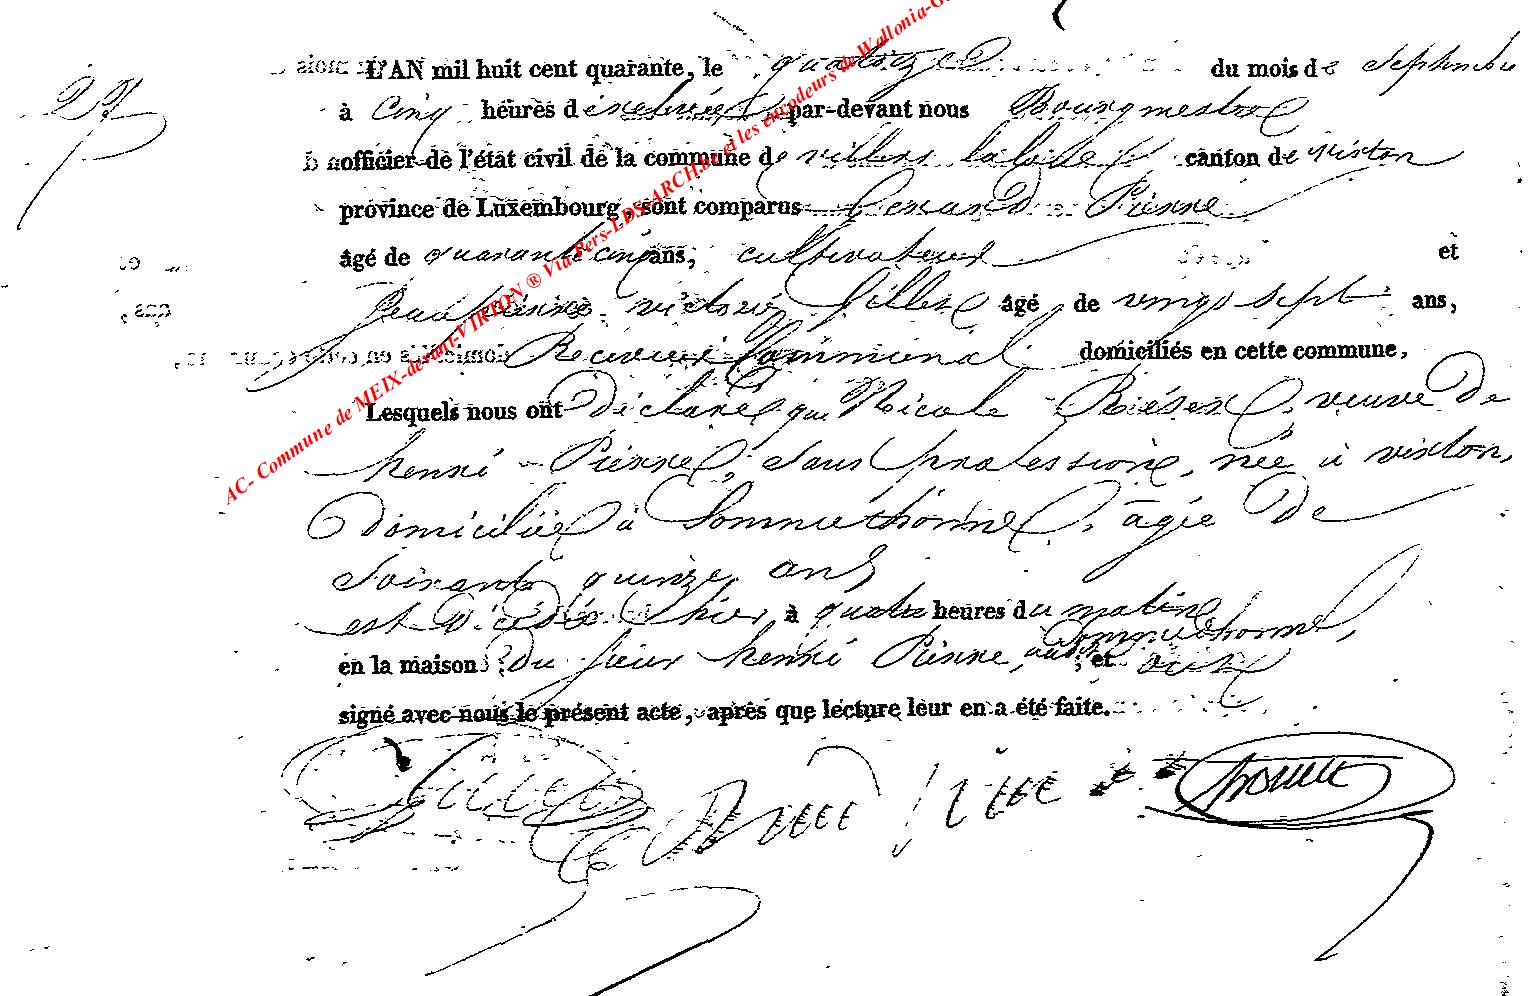 27
L'AN mil huit cent quarante, le quatorze du mois de Septembre
à Cinq heures de relevée par-devant nous Bourgmestre
officier de l'état civil de la commune de villers laloue canton de virton
province de Luxembourg, sont comparus Gerand Pierre
âgé de quarante cinq ans, cultivateur et
Jean pierre victoire Gillet âgé de vingt sept ans,
Receveur Communal domiciliés en cette commune,
Lesquels nous ont Déclaré que Nicole veuve De
henri Pierre, Sans profession, née à virton,
Domiciliée à Sommethonne, agée De
Soixante quinze ans
est Décédée hier à quatre heures du matin
en la maison Du sieur henri Pierre, audit Sommethonne, et ont
signé avec nous le présent acte, après que lecture leur en a été faite.
AC- Commune de MEIX-devant-VIRTON ® Via Pers-LDS-ARCH.be et les encodeurs de Wallonia-G